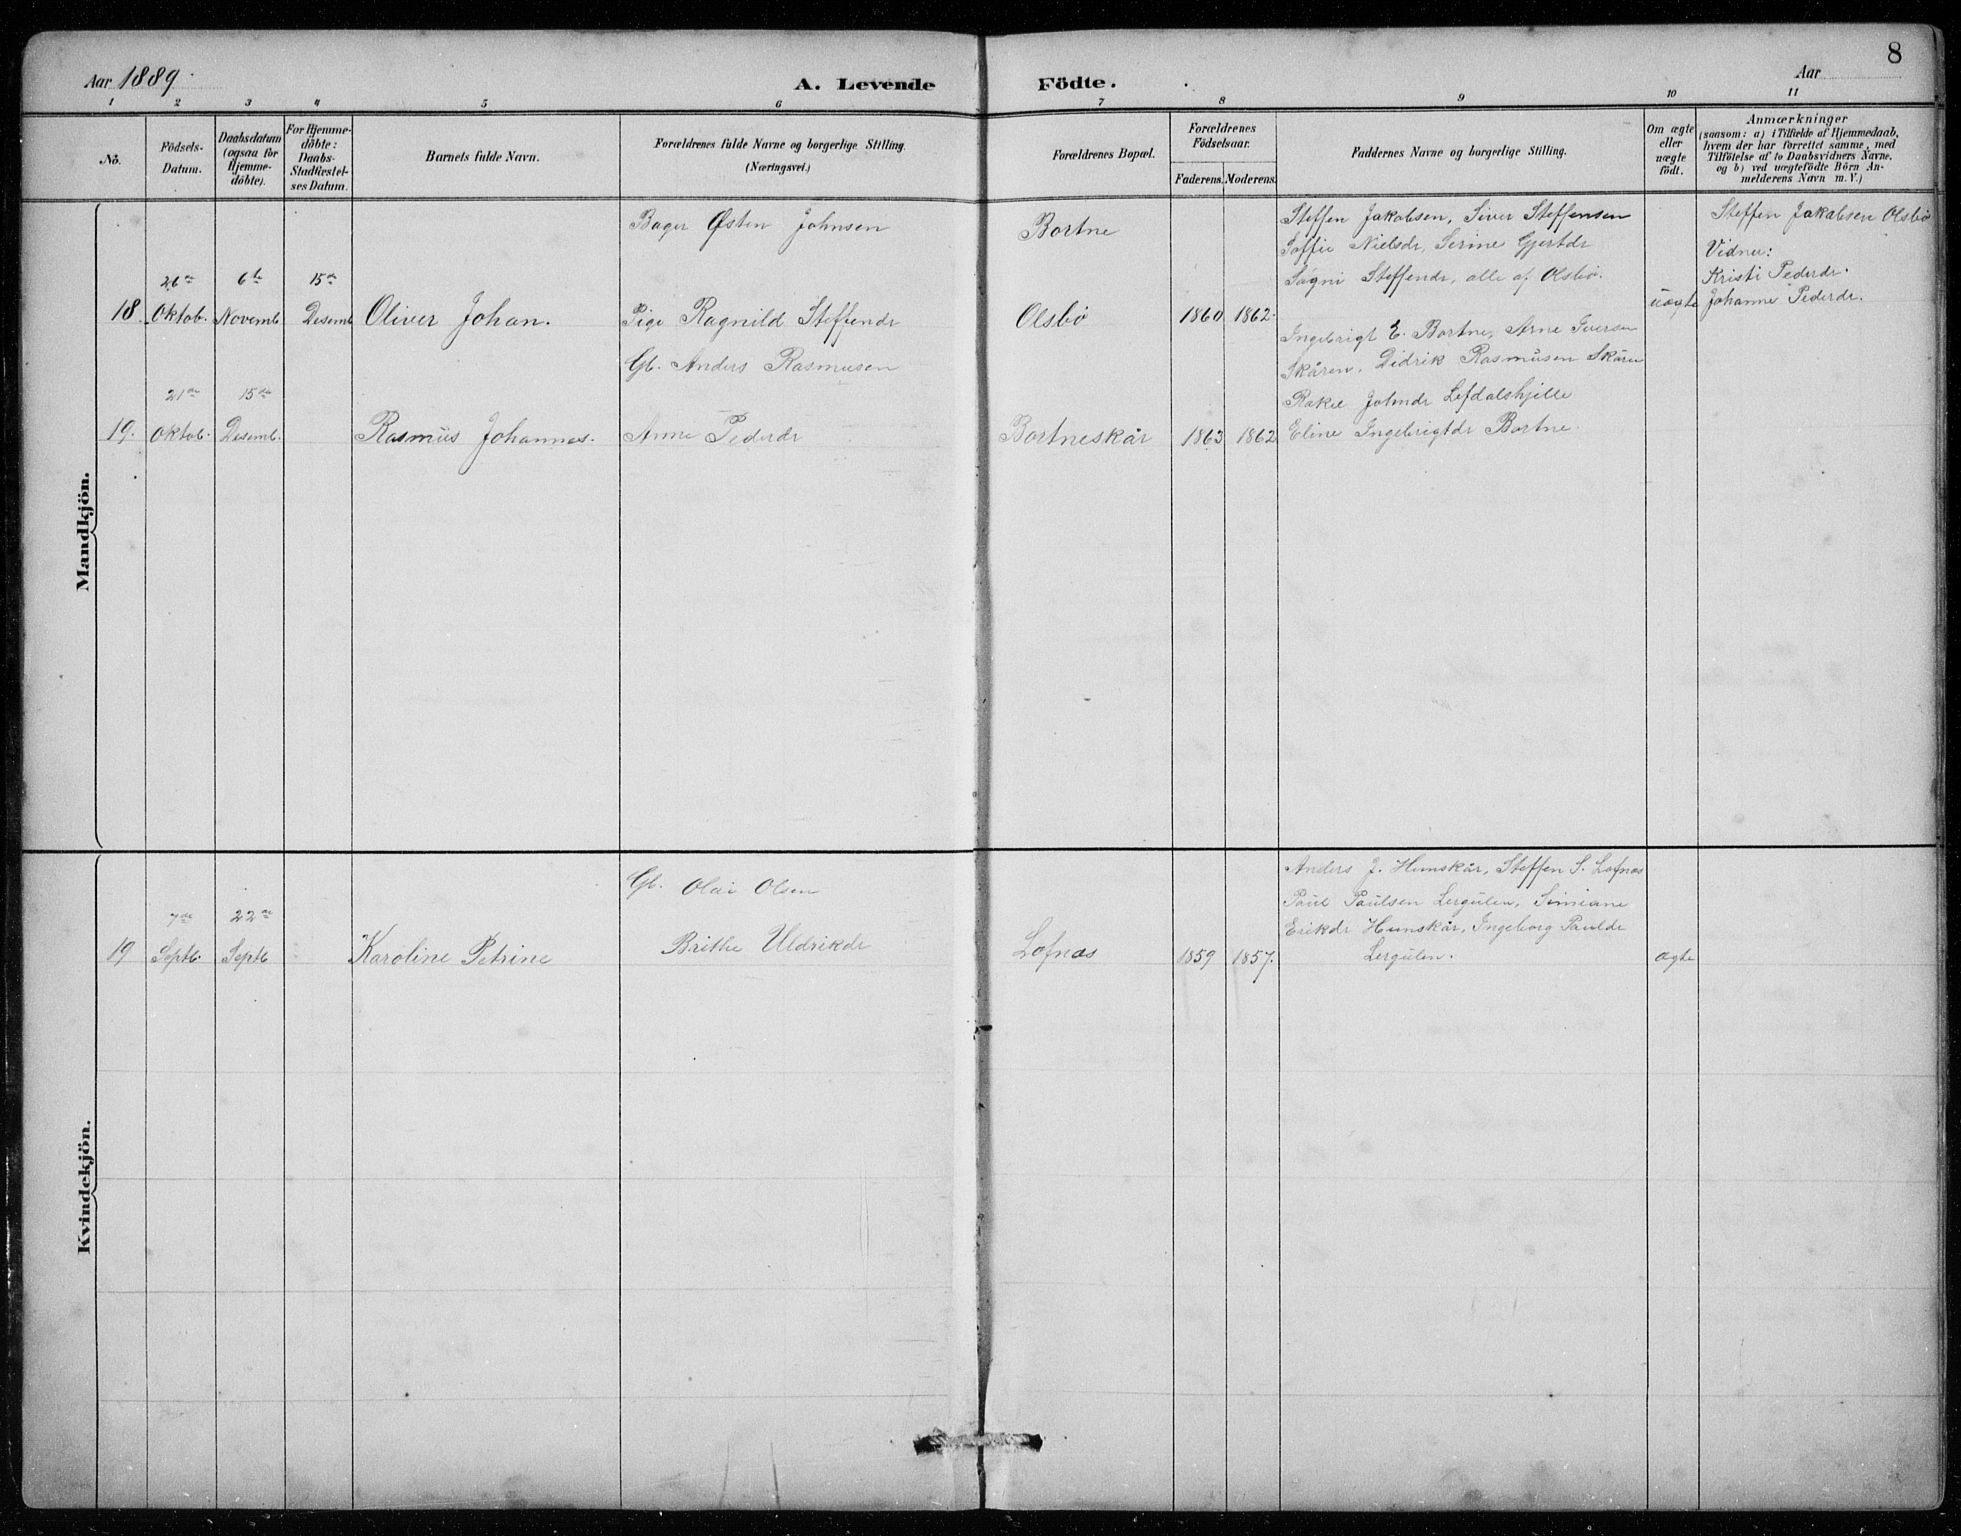 8
Aar 1889.
A. Levende Födte.
Aar
1 2 3 4 5 6 7 8 9 10 11
No.
Födsels-
Datum.
Daabsdatum
(ogsaa for
Hjemme-
döbte).
For Hjemme-
döbte:
Daabs-
Stadfæstel-
ses Datum.
Barnets fulde Navn.
Forældrenes fulde Navne og borgerlige Stilling.
(Næringsvei.)
Forældrenes Bopæl.
Forældrenes
Födselsaar.
Faderens. Moderens.
Faddernes Navne og borgerlige Stilling.
Om ægte
eller
uægte
födt.
Anmærkninger
(saasom: a) i Tilfælde af Hjemmedaab,
hvem der har forrettet samme, med
Tilföielse af to Daabsvidners Navne,
og b) ved uægtefödte Börn An-
melderens Navn m. V.)
Mandkjön.
18.
26de
Oktob.
6te
Novemb
15de
Desemb
Oliver Johan.
Bager Østen Johnsen
Pige Ragnild Steffendr
Bortne
Olsbö
1860 1862.
Steffen Jakobsen, Siver Steffensen
Soffie Nielsdr, Serine Gjertdr
Sögni Steffendr, alle af Olsbö.
uægte
Steffen Jakobsen Olsbö
Vidner:
Kristi Pederdr.
Johanne Pederdr.
19.
21de
Oktob.
15de
Desemb.
Rasmus Johannes.
Gb. Anders Rasmusen
Anne Pederdr
Bortneskår
1863 1862
Ingebrigt E. Bortne, Arne Iversen
Skåren, Didrik Rasmusen Skåren
Rakel Johndr Lefdalshjelle
Eline Ingebrigtdr Bortne.
Kvindekjön.
19
7de
Septb.
22de
Septb
Karoline Petrine
Gb. Olai Olsen
Brithe Uldrikdr
Lofnæs
1859 1857.
Anders J. Humskår, Steffen S. Lofnæs
Paul Paulsen Lergulen, Simiane
Erikdr Humskår, Ingeborg Pauldr
Lergulen.
ægte